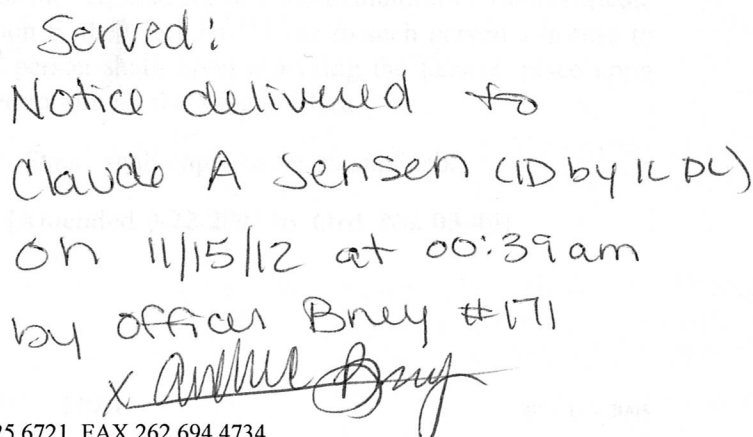 Served:
Notice delivered to
Claude A Jensen (ID by IL DL)
on 11/15/12 at 00:39 am
by officer Bney #171
X
25.6721 FAX 262.694.4734